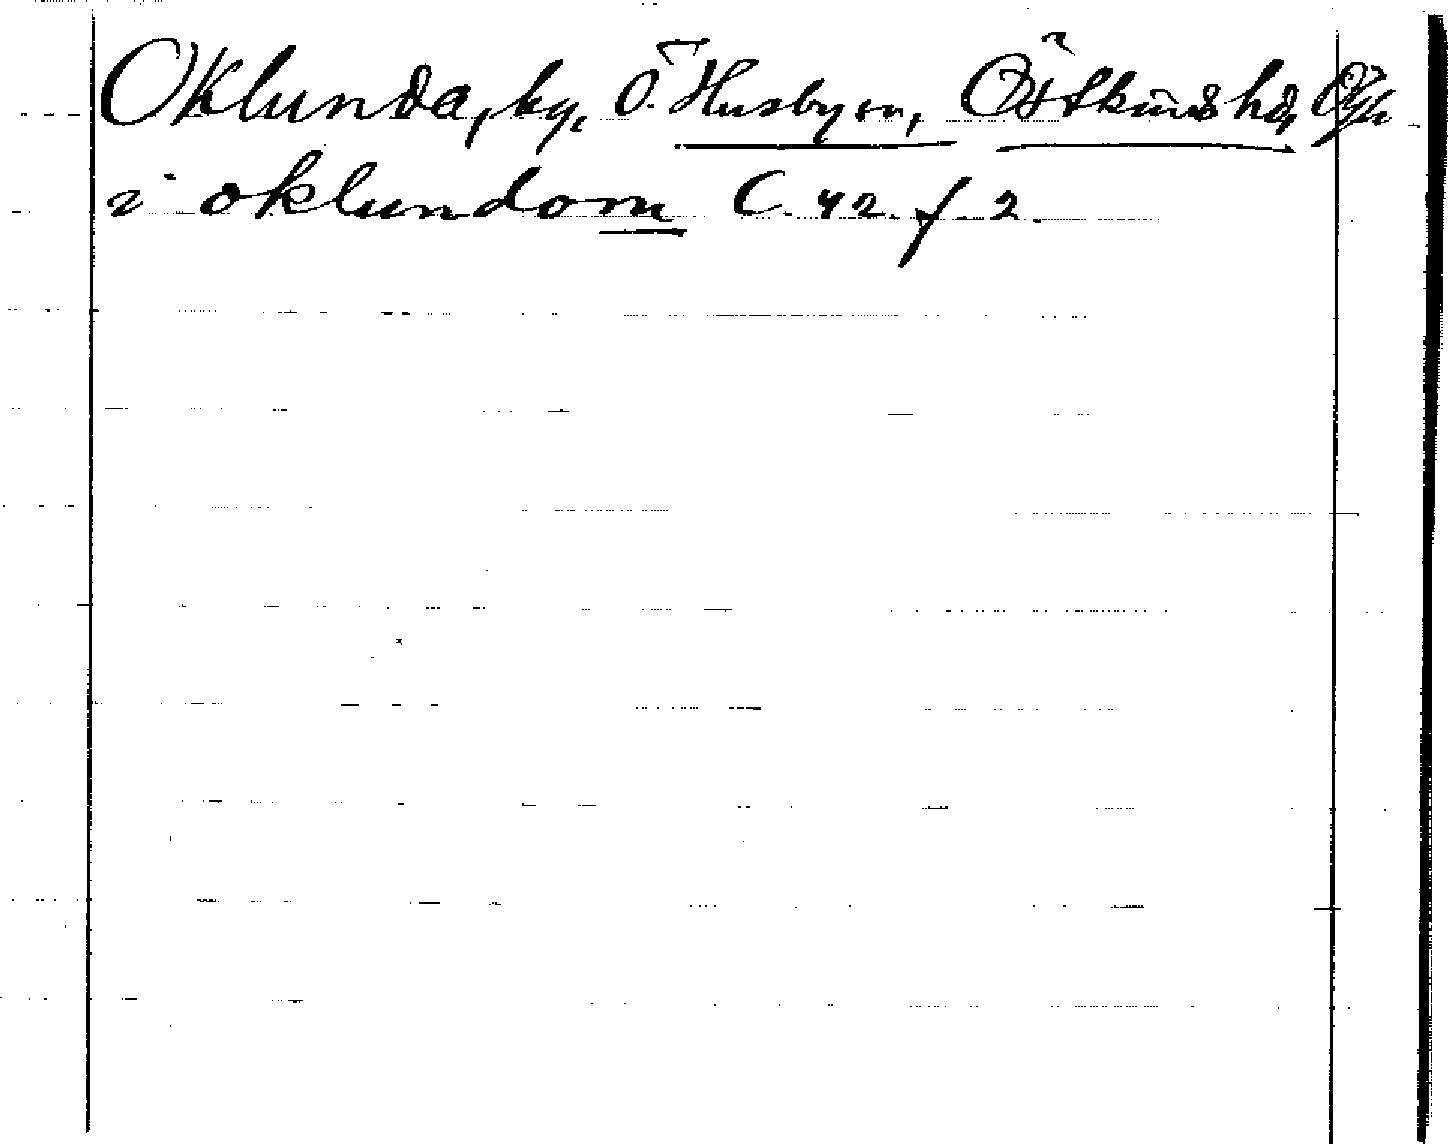 Oklunda, by, Ö. Husby sn, Östkinds hd, Ög
i oklundom C. 42. f. 2.